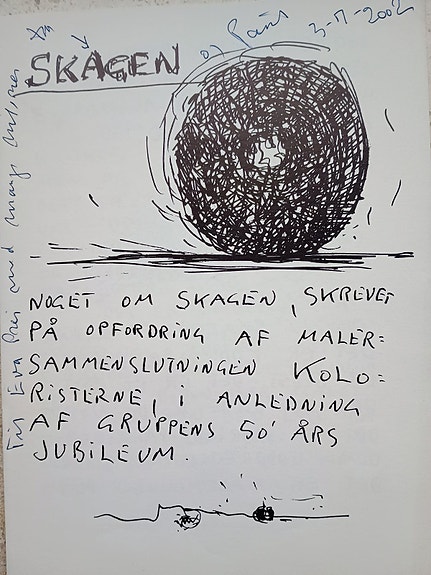 SKAGEN og Paris 3-11-2002
NOGET OM SKAGEN, SKREVET
PÅ OPFORDRING AF MALER=
SAMMENSLUTNINGEN KOLO=
RISTERNE, I ANLEDNING
AF GRUPPENS 50' ÅRS
JUBILEUM.
Til med mange